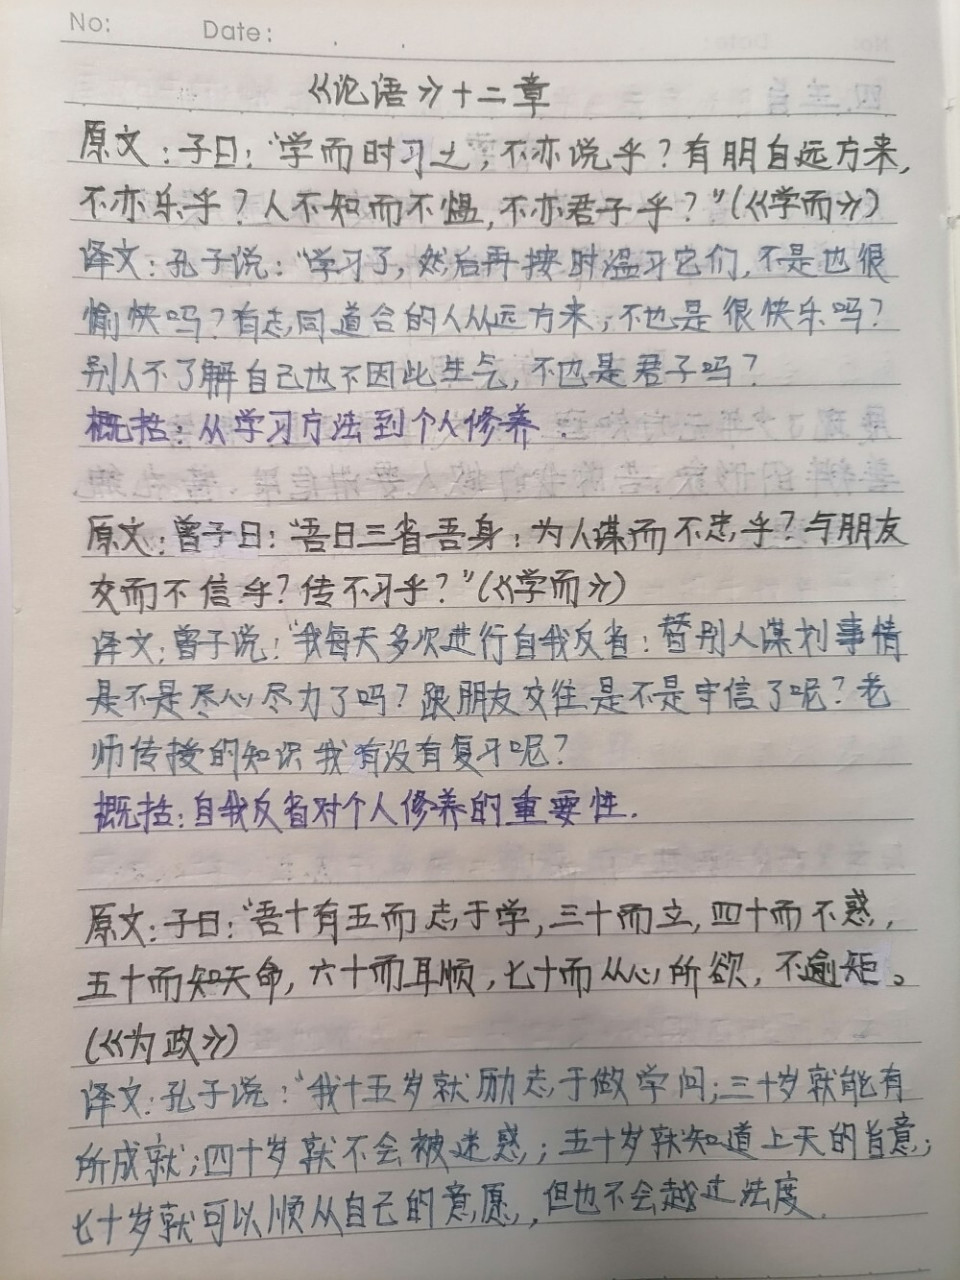 No:
Date:
《论语》十二章
原文:子曰:“学而时习之,不亦说乎?有朋自远方来,
不亦乐乎?人不知而不愠,不亦君子乎?”(《学而》)
译文:孔子说:“学习了,然后再按时温习它们,不是也很
愉快吗?有志同道合的人从远方来,不也是很快乐吗?
别人不了解自己也不因此生气,不也是君子吗?
概括:从学习方法到个人修养.
原文:曾子曰:“吾日三省吾身:为人谋而不忠乎?与朋友
交而不信乎?传不习乎?”(《学而》)
译文:曾子说:“我每天多次进行自我反省:替别人谋划事情
是不是尽心尽力了吗?跟朋友交往是不是守信了呢?老
师传授的知识我有没有复习呢?
概括:自我反省对个人修养的重要性.
原文:子曰:“吾十有五而志于学,三十而立,四十而不惑,
五十而知天命,六十而耳顺,七十而从心所欲,不逾矩。
(《为政》)
译文:孔子说:“我十五岁就励志于做学问;三十岁就能有
所成就;四十岁就不会被迷惑;五十岁就知道上天的旨意;
七十岁就可以顺从自己的意愿,但也不会越过法度.